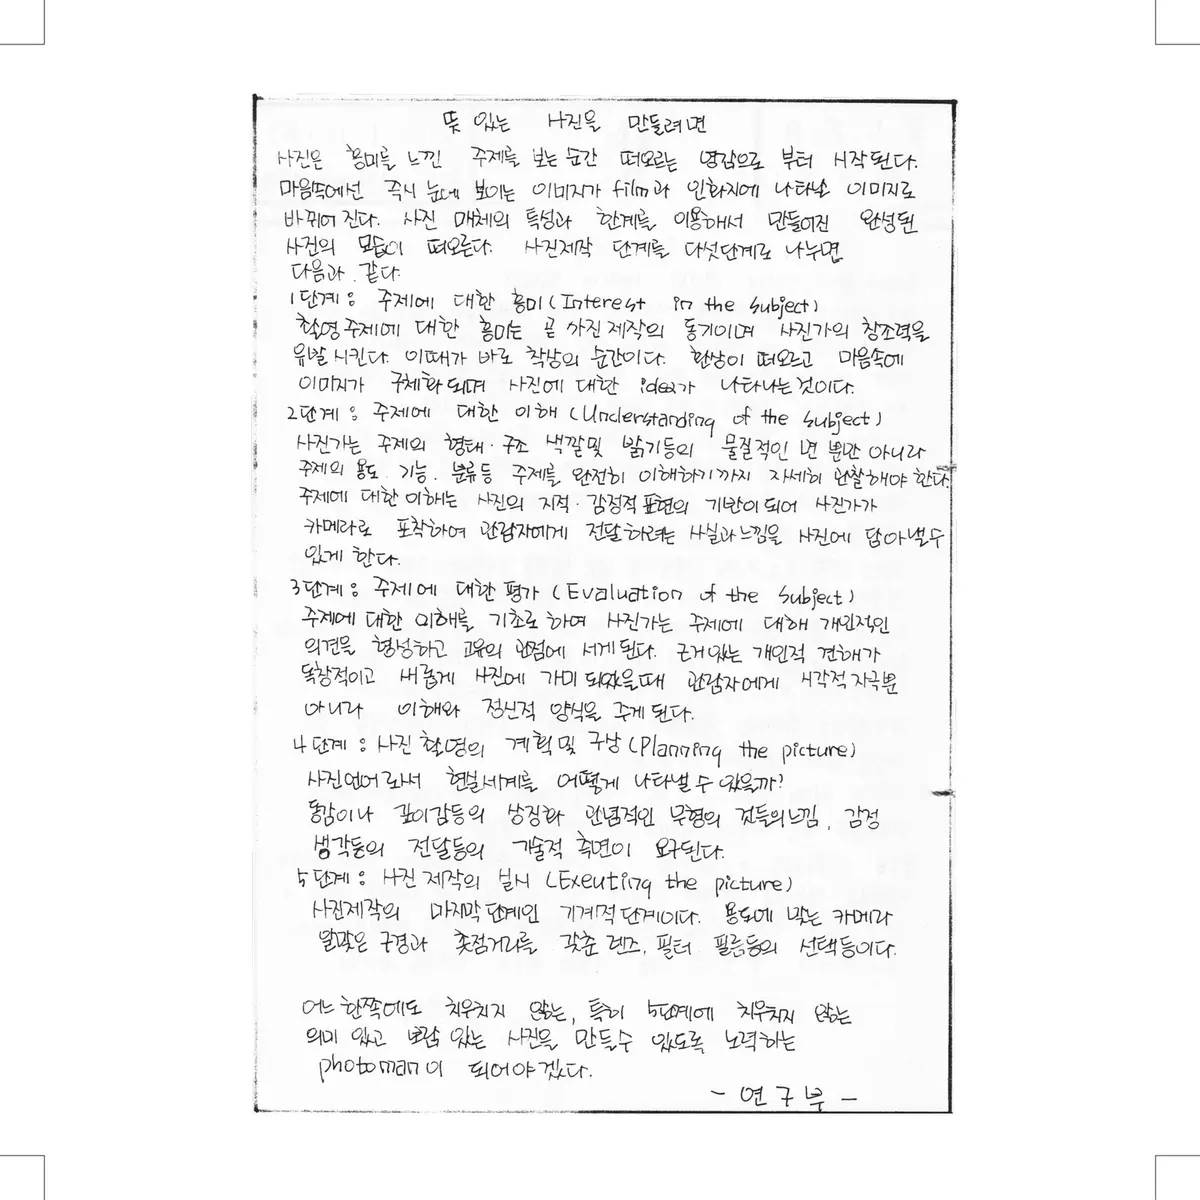 뜻 있는 사진을 만들려면
사진은 흥미를 느낀 주제를 보는 순간 떠오르는 영감으로 부터 시작된다.
마음속에선 즉시 눈에 보이는 이미지가 film과 인화지에 나타날 이미지로
바뀌어 진다. 사진 매체의 특성과 한계를 이용해서 만들어진 완성된
사진의 모습이 떠오른다. 사진제작 단계를 다섯단계로 나누면
다음과 같다.
1단계: 주제에 대한 흥미(Interest in the subject)
촬영주제에 대한 흥미는 곧 사진제작의 동기이며 사진가의 창조력을
유발시킨다. 이때가 바로 착상의 순간이다. 환상이 떠오르고 마음속에
이미지가 구체화되며 사진에 대한 idea가 나타나는것이다.
2단계: 주제에 대한 이해(Understanding of the subject)
사진가는 주제의 형태·구조 색깔및 밝기등의 물질적인 면 뿐만 아니라
주제의 용도. 기능. 분류등 주제를 완전히 이해하기까지 자세히 관찰해야 한다.
주제에 대한이해는 사진의 지적·감정적표현의 기반이되어 사진가가
카메라로 포착하여 관람자에게 전달하려는 사실과느낌을 사진에 담아낼수
있게 한다.
3단계: 주제에 대한 평가(Evaluation of the subject)
주제에 대한 이해를 기초로하여 사진가는 주제에 대해 개인적인
의견을 형성하고 고유의 관점에 서게된다. 근거있는 개인적 견해가
독창적이고 새롭게 사진에 가미되었을때 관람자에게 시각적자극뿐
아니라 이해와 정신적 양식을 주게된다.
4단계: 사진촬영의 계획및 구상(Planning the picture)
사진언어로서 현실세계를 어떻게 나타낼 수 있을까?
동감이나 깊이감등의 상징화 관념적인 무형의 것들의느낌, 감정
생각등의 전달등의 기술적 측면이 요구된다.
5단계: 사진제작의 실시(Exeuting the picture)
사진제작의 마지막단계인 기계적단계이다. 용도에 맞는 카메라
알맞은 구경과 촛점거리를 갖춘 렌즈, 필터 필름등의 선택등이다.
어느한쪽에도 치우치지 않는, 특히 5단계에 치우치지 않는
의미 있고 보람 있는 사진을 만들수 있도록 노력하는
photoman이 되어야겠다.
- 연구부 -